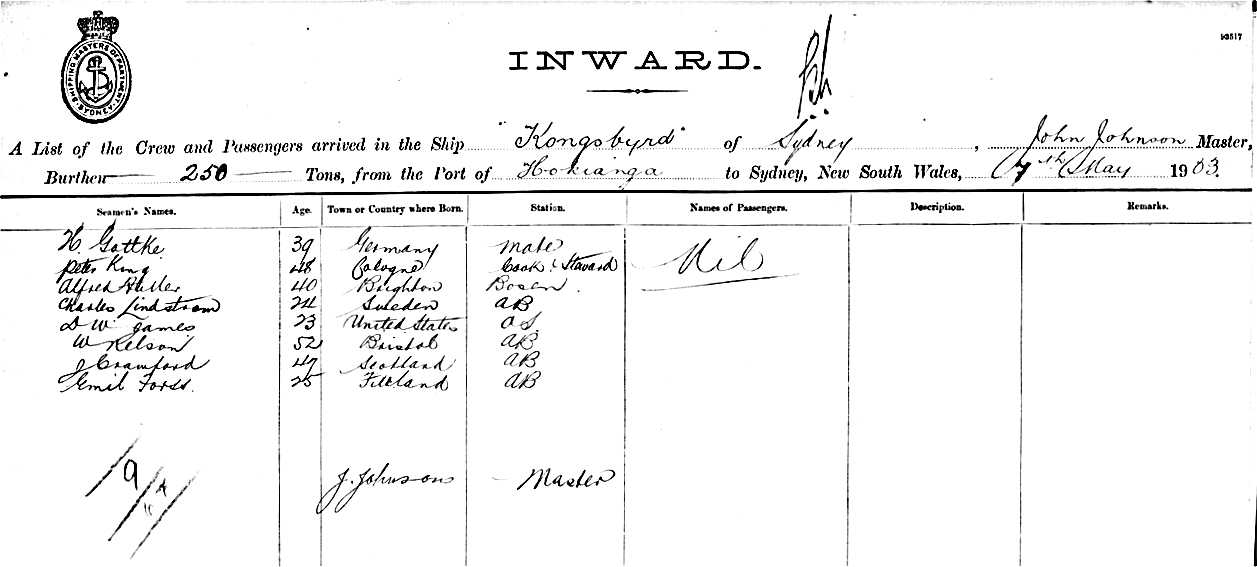 93517
SHIPPING MASTERS DEPARTMENT SYDNEY
INWARD.
A List of the Crew and Passengers arrived in the Ship "Kongsbyrd" of Sydney, John Johnson Master,
Burthen 250 Tons, from the Port of Hokianga to Sydney, New South Wales, 7th May 1903.
Seamen's Names. Age. Town or Country where Born. Station. Names of Passengers. Description. Remarks.
H. Gottke 39 Germany Mate Nil
Peter King 48 Cologne Cook & Steward
Alfred 40 Brighton Bosen
Charles Lindstrom 24 Sweden AB
D W James 23 United States OS.
W Kelson 52 Bristol AB
J Crawford 47 Scotland AB
Emil Forss. 25 AB
9
J. Johnson - Master